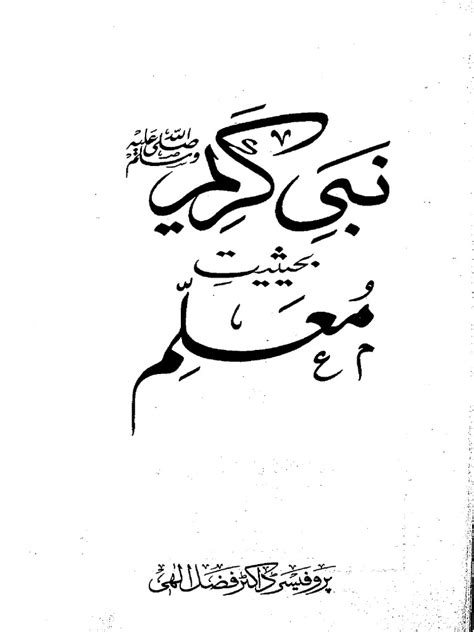 نَبیِ کَرِیم صلی اللہ علیہ وسلم
بحیثیتِ
مُعَلِّم
پروفیسر ڈاکٹر فضل الٰہی